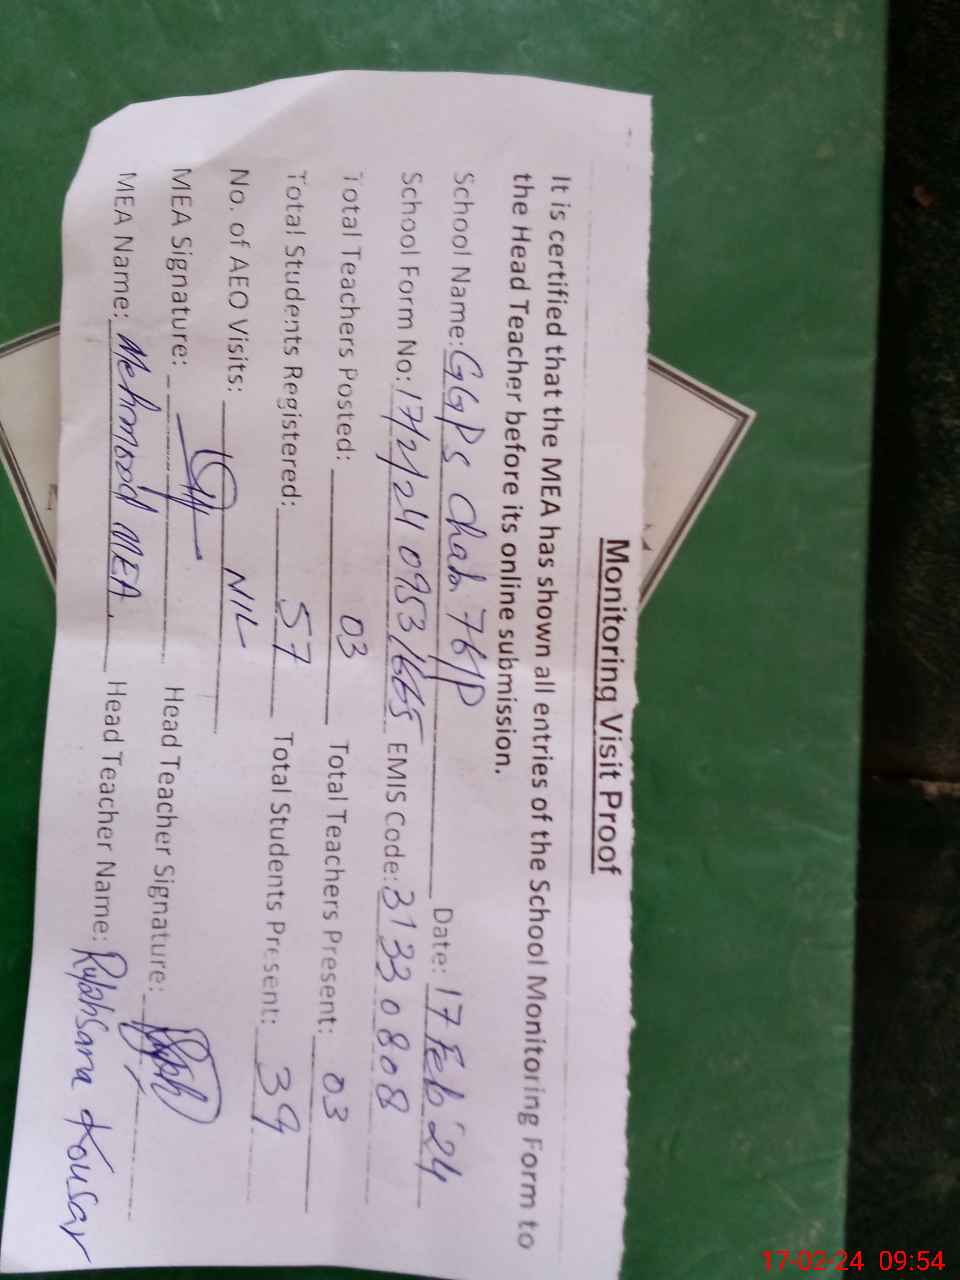 Monitoring Visit Proof
It is certified that the MEA has shown all entries of the School Monitoring Form to
the Head Teacher before its online submission.
School Name: GGPS Chak 76/P Date: 17 Feb '24
School Form No: 17/2/24 0953/665 EMIS Code: 31330808
Total Teachers Posted: 03 Total Teachers Present: 03
Total Students Registered: 57 Total Students Present: 39
No. of AEO Visits: NIL
MEA Signature: Head Teacher Signature:
MEA Name: Mehmood MEA, Head Teacher Name: Kousar
17-02-24 09:54